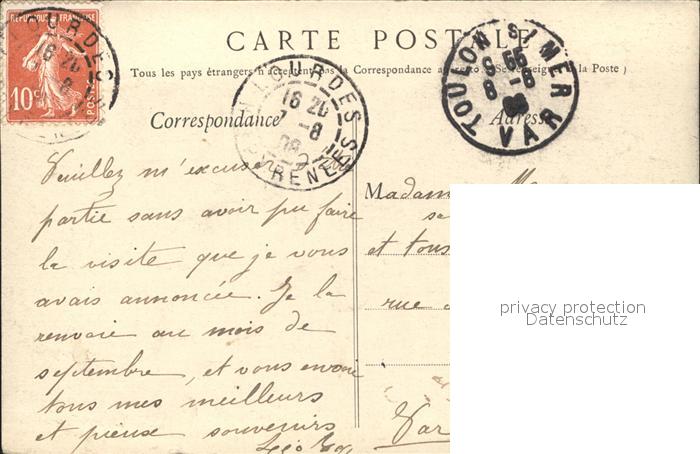 RÉPUBLIQUE FRANÇAISE
10c
POSTES
LOURDES
CARTE POSTALE
Tous les pays étrangers n'acceptent pas la Correspondance au recto (Se renseigner à la Poste)
Correspondance
Adresse
LOURDES
16 20
7 -8
08
PYRENEES
TOULON S/MER
VAR
8 -8
08
Veuillez m'excuser
partie sans avoir pu faire
la visite que je vous
avais annoncée. Je la
renvoie au mois de
septembre, et vous envoie
tous mes meilleurs
et pieux souvenirs
Madame
et tous
rue
Var
privacy protection
Datenschutz